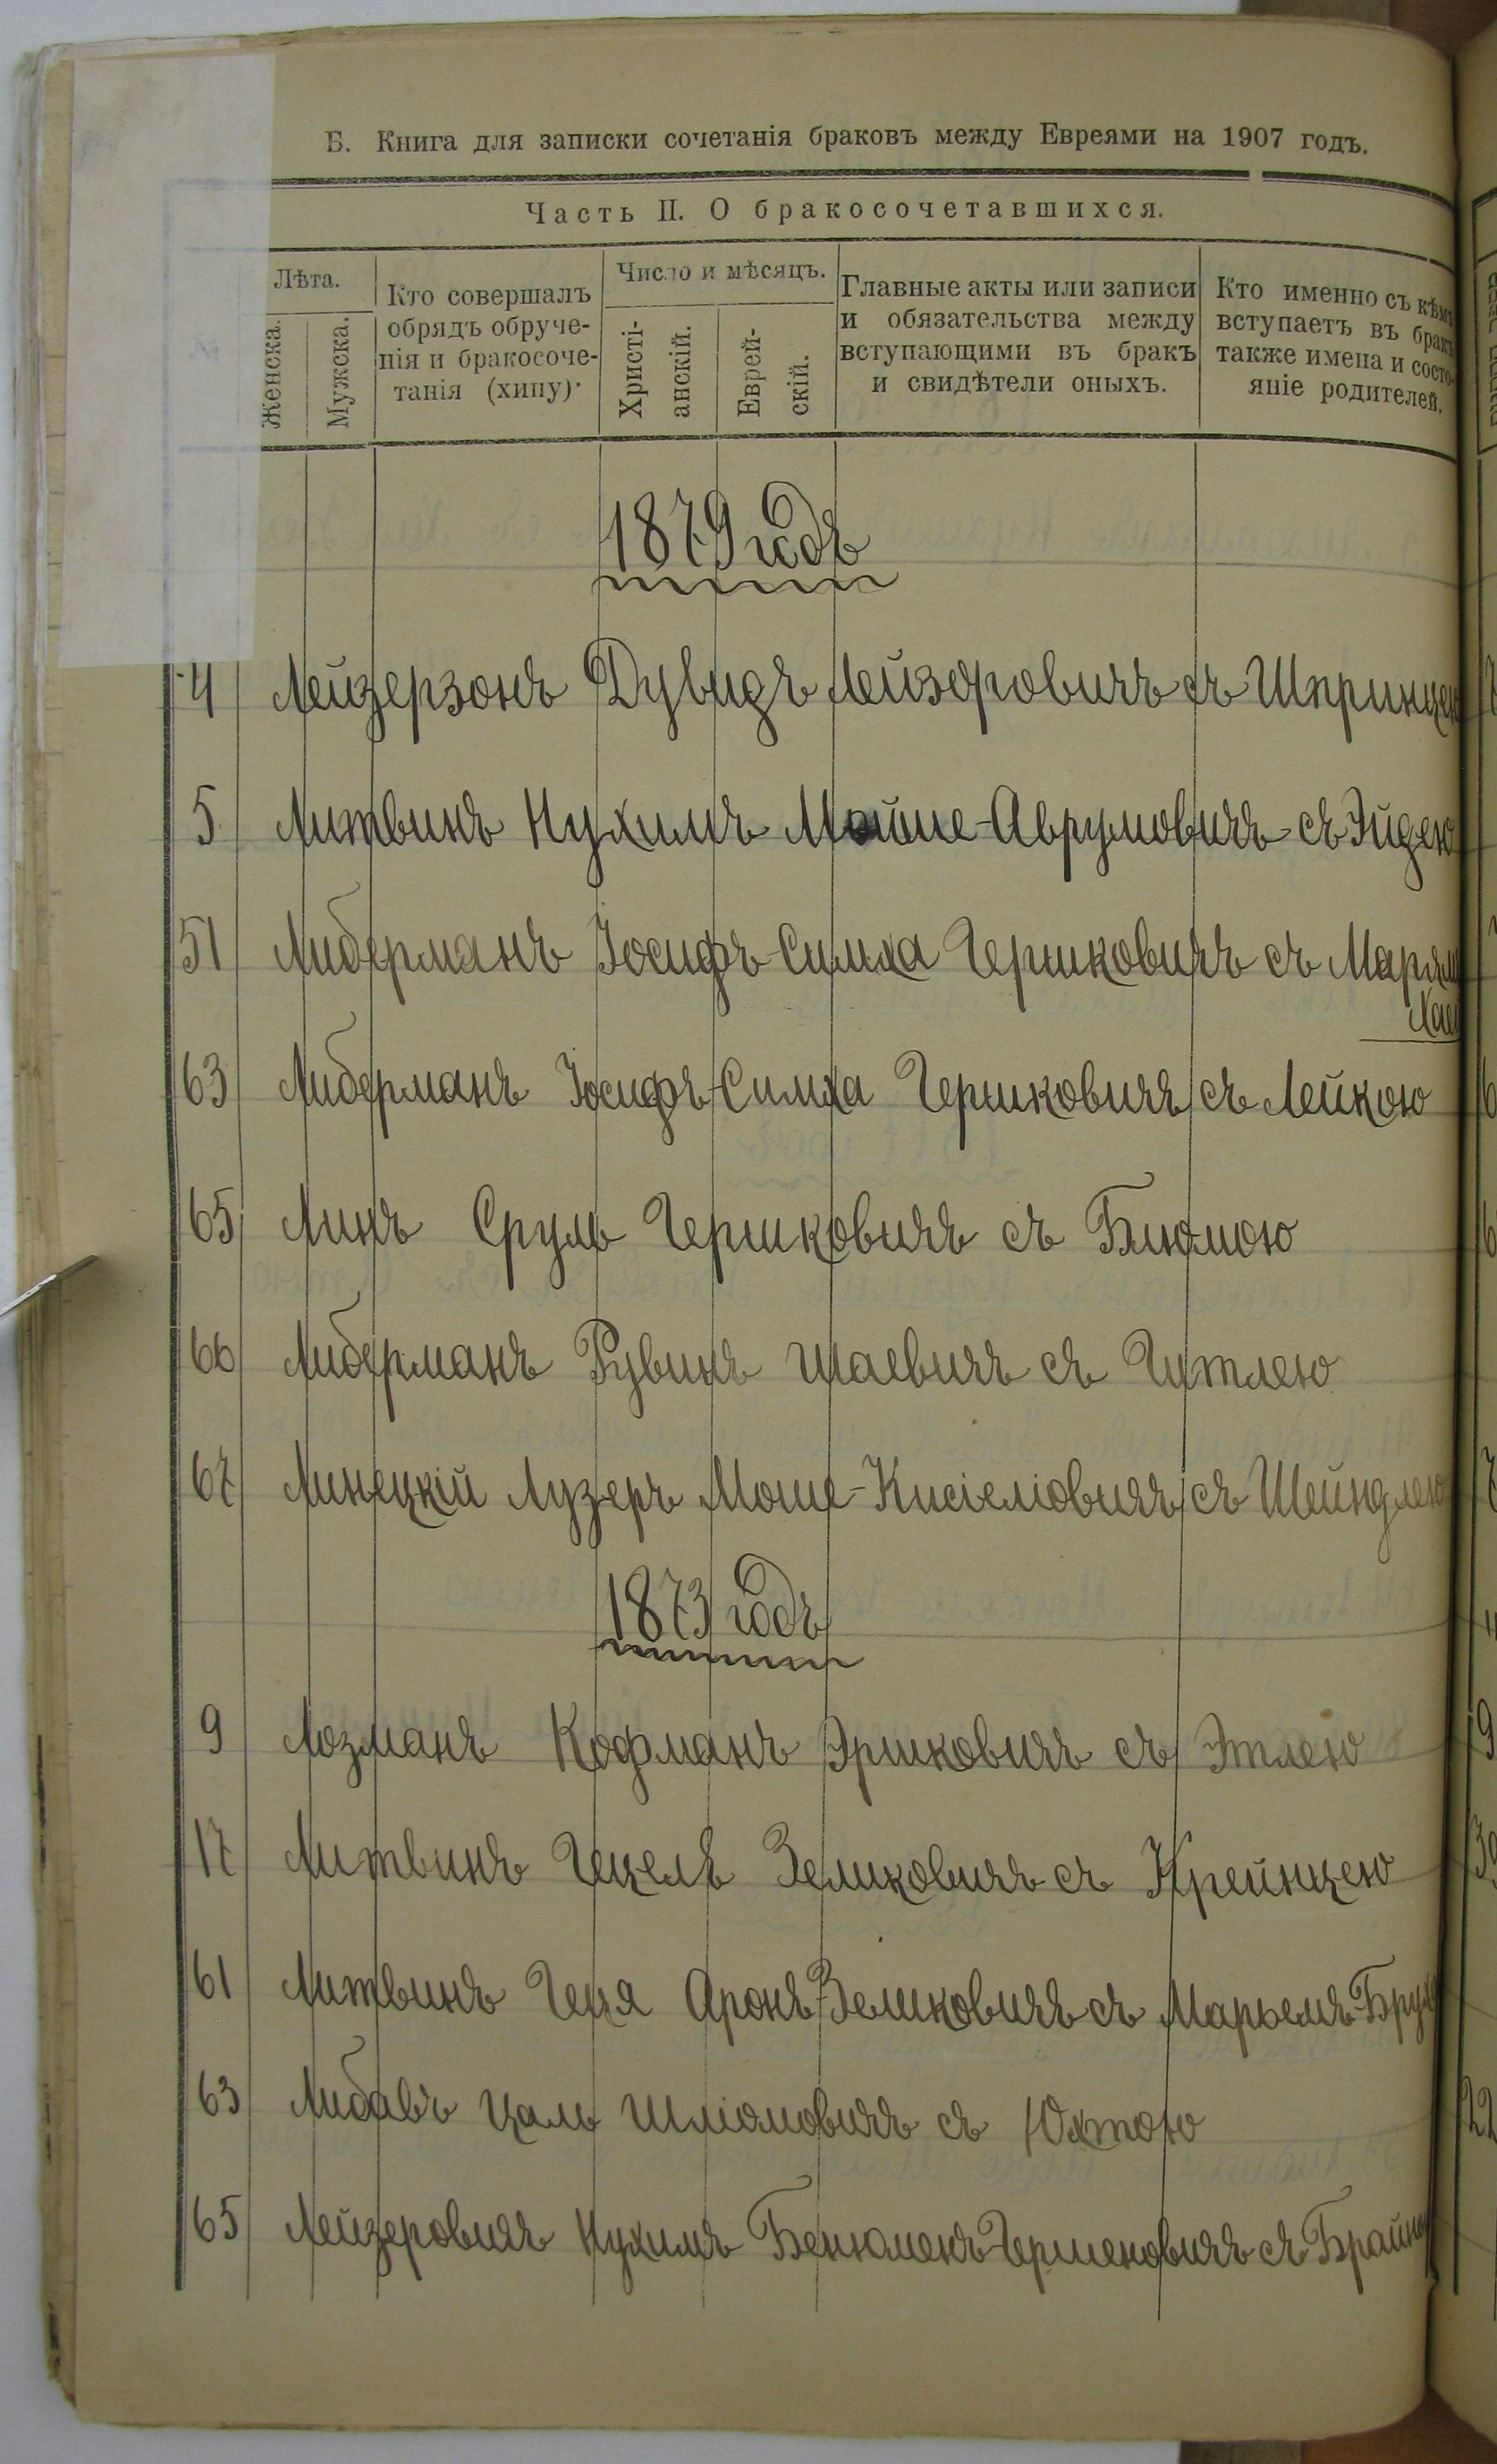 Б. Книга для записки сочетанія браковъ между Евреями на 1907 годъ.
Часть II. О бракосочетавшихся.
Лѣта.
Женска.
Мужска.
Кто совершалъ
обрядъ обруче-
нія и бракосоче-
танія (хипу).
Число и мѣсяцъ.
Христі-
анскій.
Еврей-
скій.
Главные акты или записи
и обязательства между
вступающими въ бракъ
и свидѣтели оныхъ.
Кто именно съ кѣмъ
вступаетъ въ бракъ
также имена и состо-
яніе родителей.
1879 годъ
4 Лейзерзонъ Дувидъ Лейзеровичъ съ Шпринцею
5 Литвинъ Нухимъ Мойше-Аврумовичъ съ Эйдею
51 Либерманъ Іосифъ-Симха Гершковичъ съ Марям
Хаею
63 Либерманъ Іосифъ-Симха Гершковичъ съ Лейкою
65 Линъ Сруль Гершковичъ съ Блюмою
66 Либерманъ Рувинъ Шаевичъ съ Гитлею
67 Линецкій Лузеръ Моше-Кисіеліовичъ съ Шейндлею
1873 годъ
9 Лозманъ Кофманъ Эршковичъ съ Этлею
17 Литвинъ Гецель Зеликовичъ съ Крейнцею
61 Литвинъ Геця Аронъ-Зеликовичъ съ Марьемъ-Брух
63 Либавъ Цаль Шліомовичъ съ Юхтою
65 Лейзеровичъ Нухимъ Бенюменъ-Гершеновичъ съ Брайною